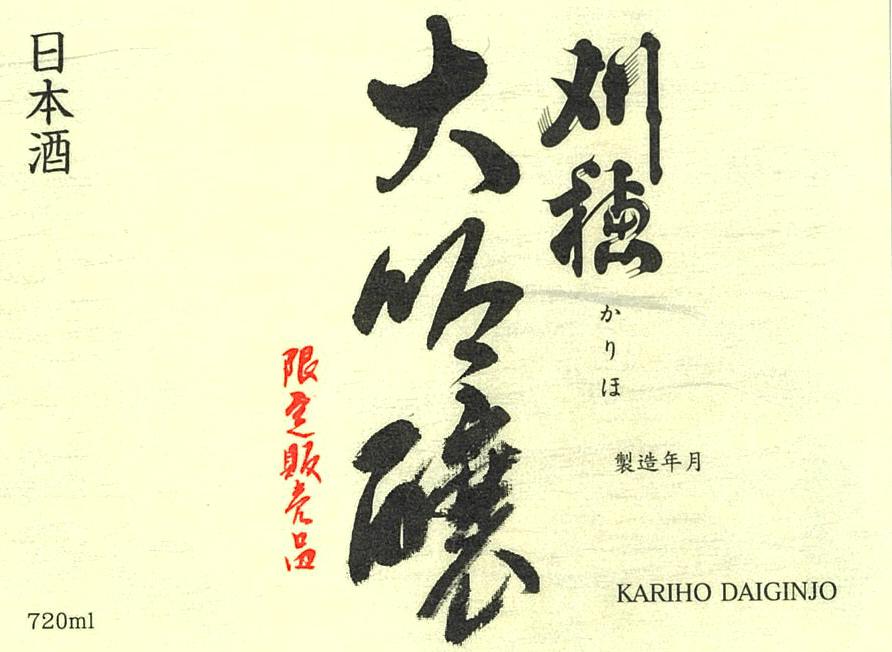 刈穂
かりほ
大吟醸
限定販売品
日本酒
製造年月
KARIHO DAIGINJO
720ml